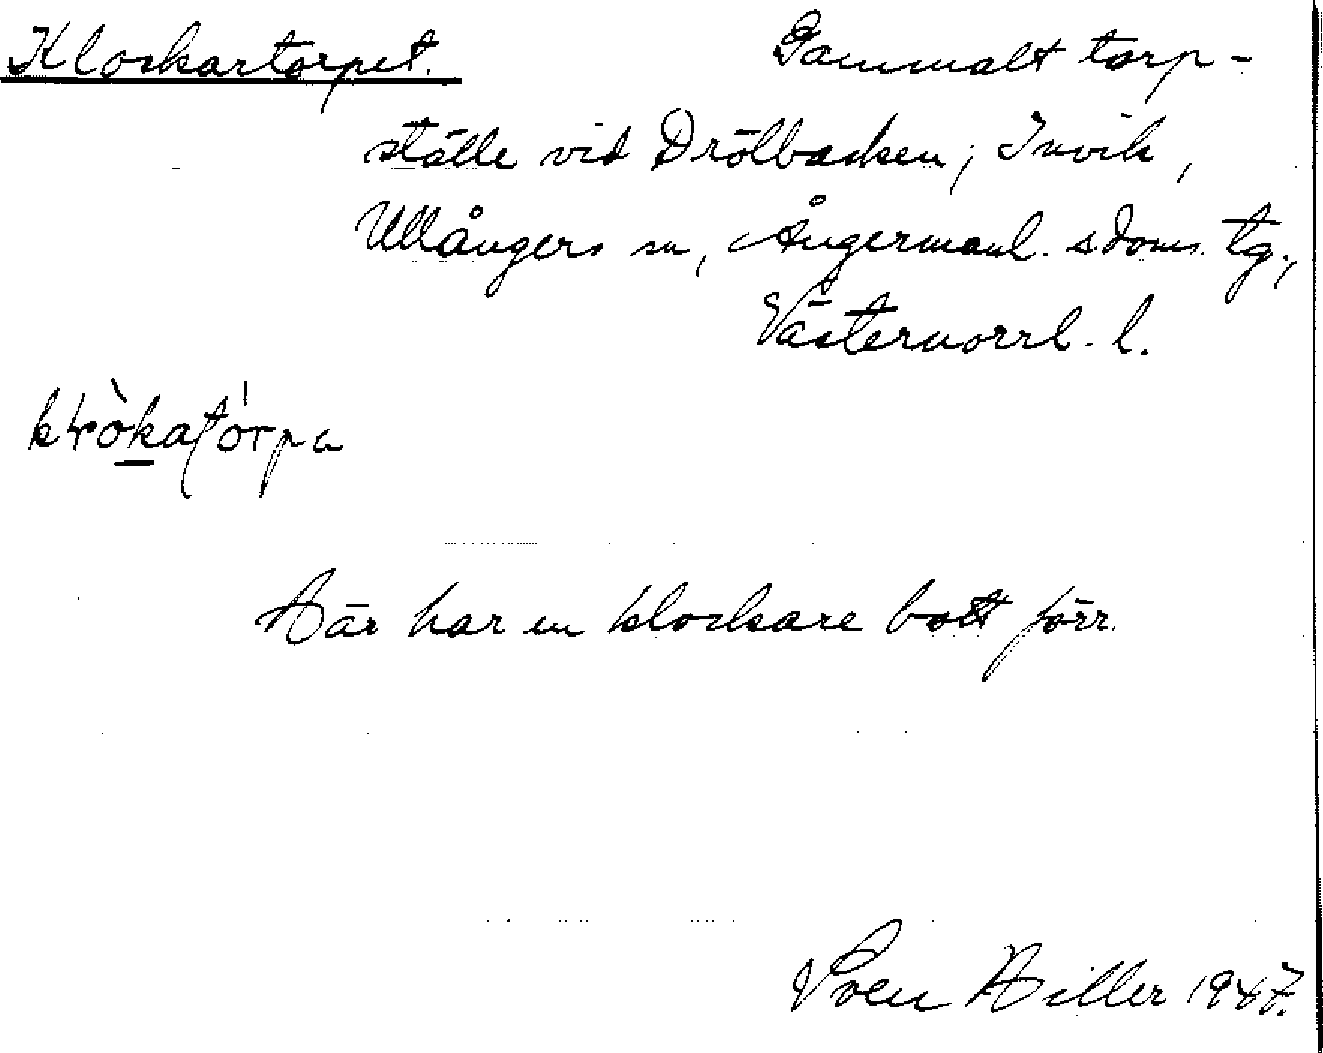 Klockartorpet. Gammalt torp-
ställe vid Drölbacken, Invik,
Ullångers sn, Ångermanl. s doms. tg.,
Västernorrl. l.
Här har en klockare bott förr.
Sven Hiller 1947.